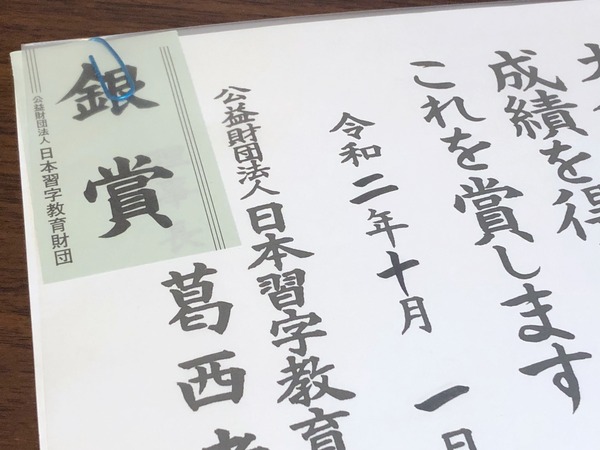 成績を得
これを賞します
令和二年十月一日
公益財団法人日本習字教育
葛西
銀賞
公益財団法人 日本習字教育財団